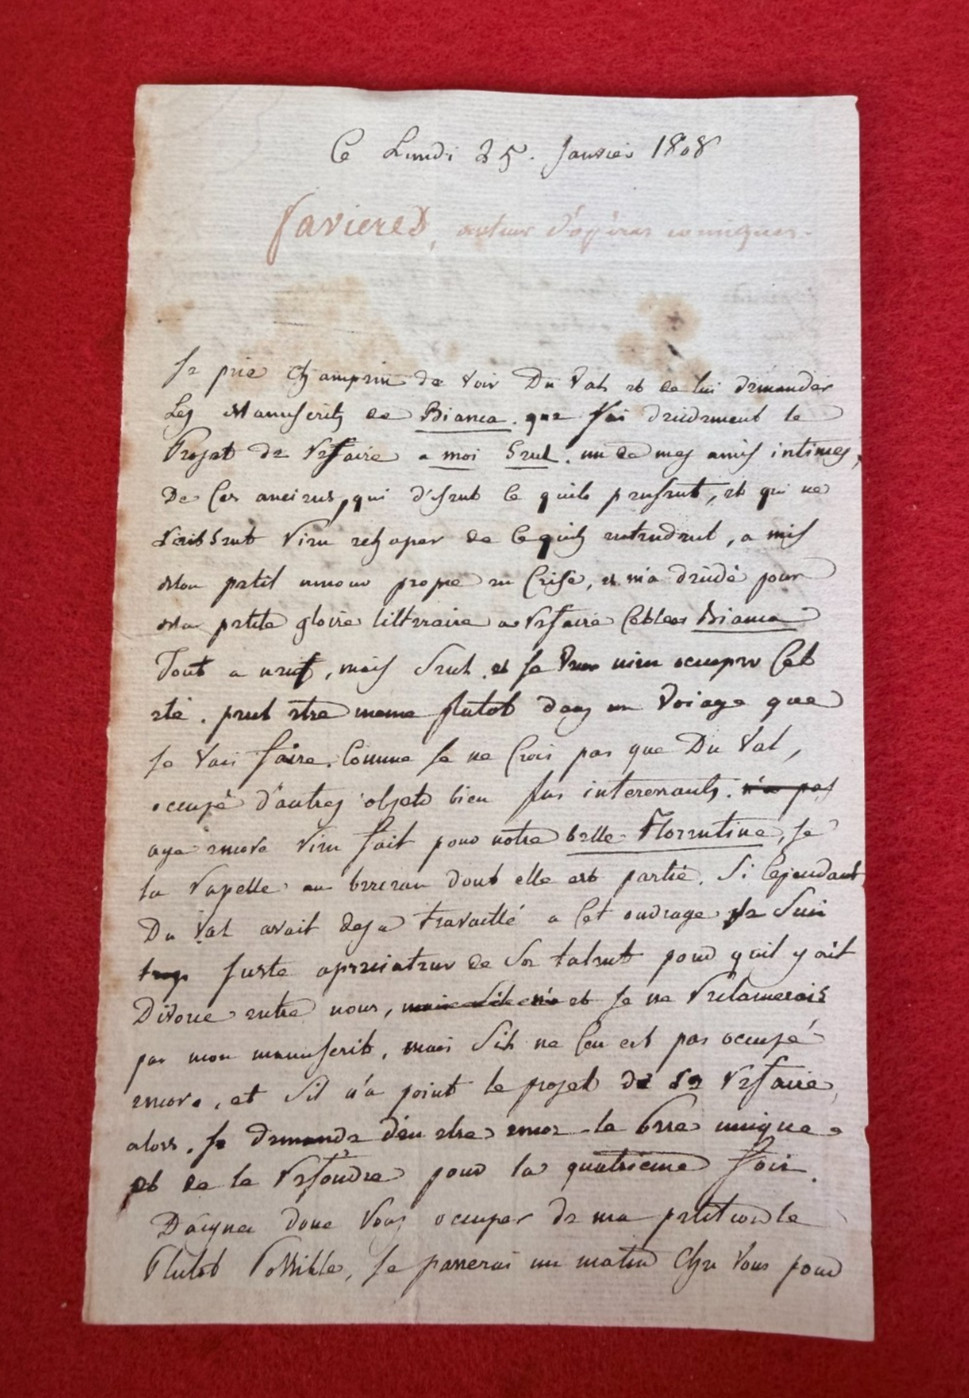 Ce Lundi 25. Janvier 1808
favieres, auteur d'opéras comiques.
Je prie Champein de voir Du Val et de lui demander
Les Manuscrits de Bianca. que j'ai decidement le
Projet de refaire a moi Seul. un de mes amis intimes,
De Ces anciens, qui disent Ce quils pensent, et qui ne
Laissent rien echaper de Ce quils entendent, a mis
Mon petit amour propre en Crise, et m'a décidé pour
Ma petite gloire littéraire a refaire Bianca
Tout a neuf, mais Seul. et Je veux m'en occuper Cet
été. peut etre meme plutot dans un Voiage que
Je Vais faire. Comme Je ne Crois pas que Du Val,
occupé d'autres objets bien plus interessants. n'a pas
aye encore rien fait pour notre belle Florentine, Je
la rapelle au berceau dont elle est partie. Si Cependant
Du Val avait deja travaillé a Cet ouvrage Je Suis
trop Juste apreciateur de Son talent pour quil y ait
Divorce entre nous, et Je ne reclamerais
pas mon manuscrit. mais Sil ne Sen est pas occupé
encore, et Sil n'a point le projet de Le refaire,
alors. Je demande d'en etre encor le pere unique
et de le refondre pour la quatrieme fois.
Daignez donc Vous occuper de ma petition le
Plutot Possible, Je passerai un matin Chez Vous pour